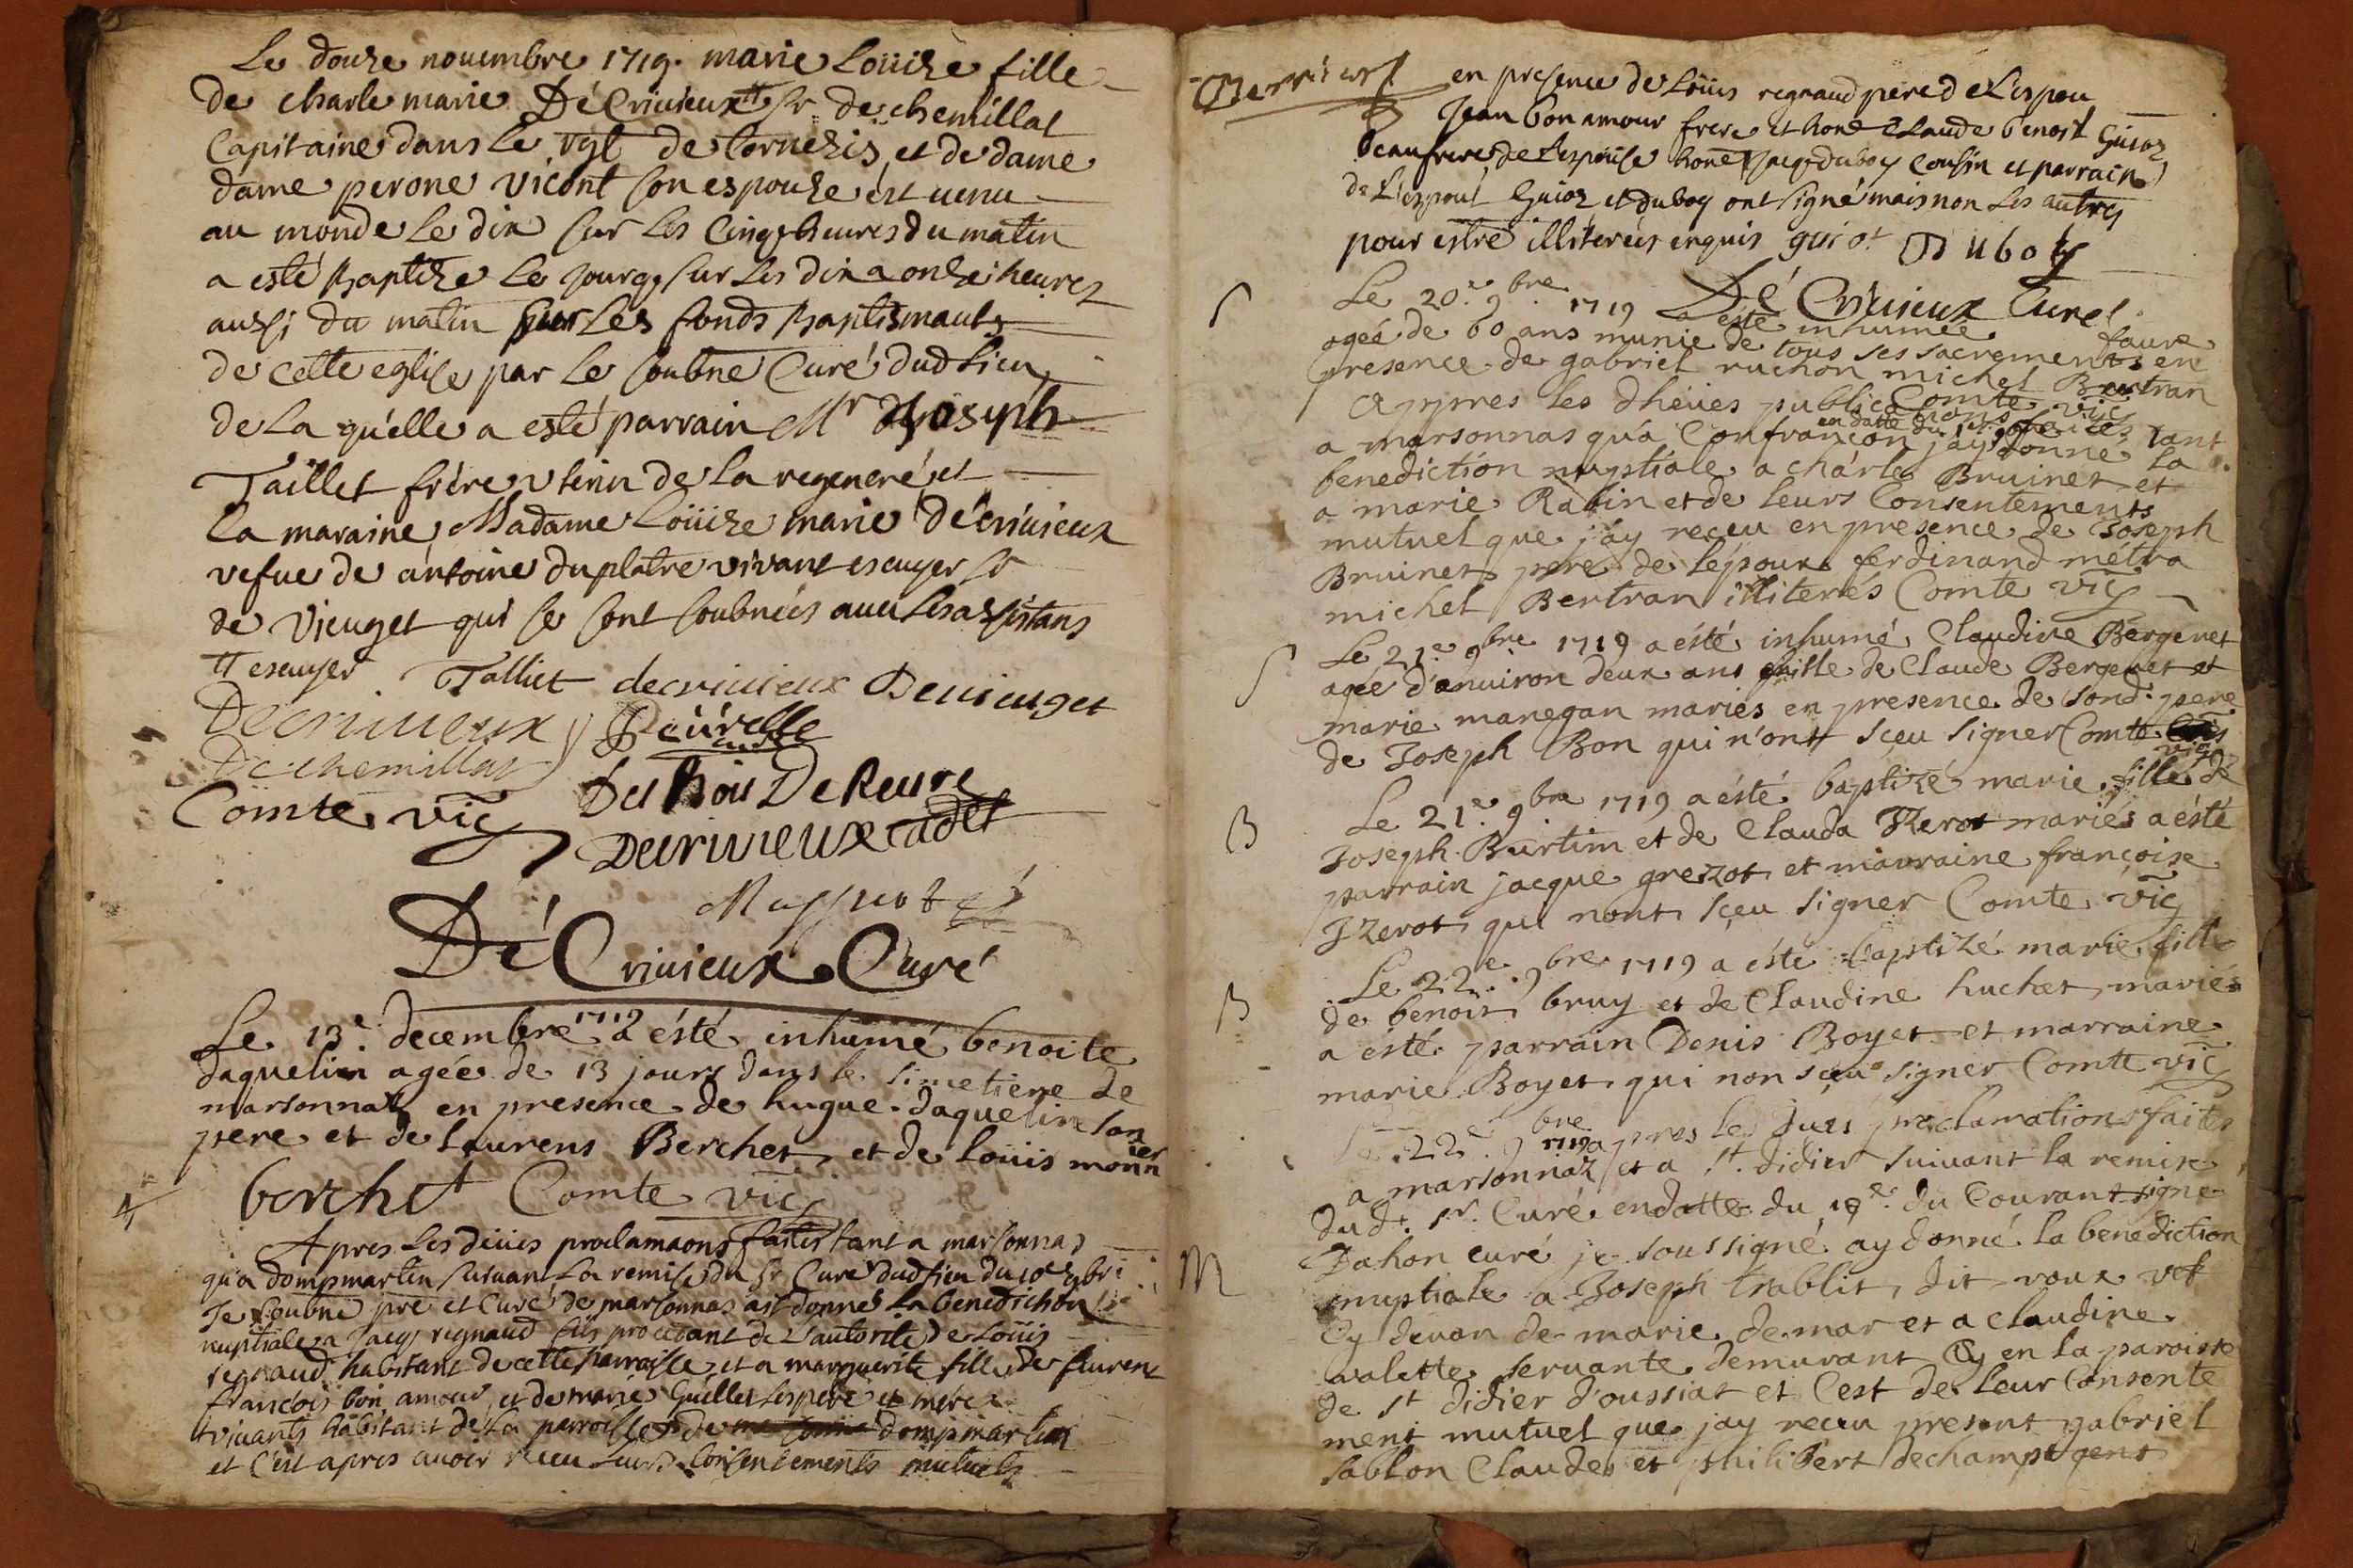 Le douze nouembre 1719. marie Loüize fille
de charle marie DéCriuieux tt Sr de chemillat
Capitaine dans le rgt de Tornezis et de dame
dame perone Vicont son espouze est uenu
au monde le dix sur les cinq heures du matin
a esté baptize le jour sur les dix a onze heures
aussi du matin sur les fonds baptismaux
de cette eglise par le soubne Curé dud lieu
de la quelle a esté parrain Mr Joseph
Taillet frere uterin de la regeneré et
la maraine Madame Loüize marie décriuieux
vefue de antoine duplatre vivant escuyer Sr
de Vieuget qui se sont soubnées auec les assistans
tt escuyer Talliet decriuieux Deuieuget
Decriuieux
Dechemillat
Comte vic Du Bois De
Decrivieux cadet
DéCriuieux Curé
Le 13e decembre 1719 a ésté inhumé benoite
daquelin agée de 13 jours dans le simetiere de
marsonnax en presence de hugue daquelin son
pere et de laurens Berchet et de loüis monnier
berchet Comte vic
Apres les deües proclamaons faites tant a marsonnas
qu'a dompmartin suiuant la remise du Sr Curé dud lieu du 10e 9bre
Je soubne pre et Curé de marsonnas ait donné la benediction
nuptiale a Jacq regnaud fils procedant de l'autorité de Loüis
regnaud habitant de cette parroisse et a marguerite fille de flurent
françois bon amour et de marie Guillet ses pere et mere
viuants habitant de la parroisse de dompmartin
et c'est apres auoir receu leurs consentements mutuels
en presence de Loüis regnaud pere de L'espou
Jean bon amour frere et hone Claude benoist Guioz
beaufrere de l'espouse hone Jacq duboy cousin et parrain
de L'espoux Guioz et duboy ont signé mais non les autres
pour estre illiterés enquis guiot Duboy
DéCriuieux Curé
Le 20e 9bre 1719 a ésté inhumée faure
ageé de 60 ans munie de tous ses sacrements en
presence de gabriel ruchon michel Bertran
Comte vic
Appres les dheües publications faites tant
a marsonnas qu'a Confrançon en datte du jay donné la
benediction nuptiale a charle Bruinet et
a marie Rabin et de leurs Consentements
mutuel que j'ay reçeu en presence de Joseph
Bruinet pere de l'époux ferdinand métra
michel Bertran illiterés Comte vic
Le 21e 9bre 1719 a ésté inhumé Claudine Bergenet
agée d'anuiron deux ans fille de Claude Bergenet et
marie manegan mariés en presence de sond. pere
de Joseph Bon qui n'ont sçeu signer Comte vic
B Le 21e 9bre 1719 a ésté baptizé marie fille de
Joseph Burtim et de Clauda Jzerot mariés a ésté
parrain jacque grezot et marraine françoise
Jzerot qui nont sçeu signer Comte vic
B Le 22e 9bre 1719 a éste baptizé marie fille
de benoit bruy et de Claudine huchet mariés
a ésté parrain Denis Boyet et marraine
marie Boyet qui non sçeu signer Comte vic
Le 22e 9bre 1719 apres les dues proclamations faites
a marsonnaz et a st didier suiuant la remise
dudt sr Curé en datte du 19e du Courant signe
M Dahon curé je soussigné ay donné la benediction
nuptiale a Joseph trablit dit roux vef
Cy deuan de marie demar et a claudine
valette seruante demurant Cy en la paroisse
de st didier d'oussiat et C'est de leur Consente
ment mutuel que jay receu present gabriel
sablon Claude et philibert dechamps gent